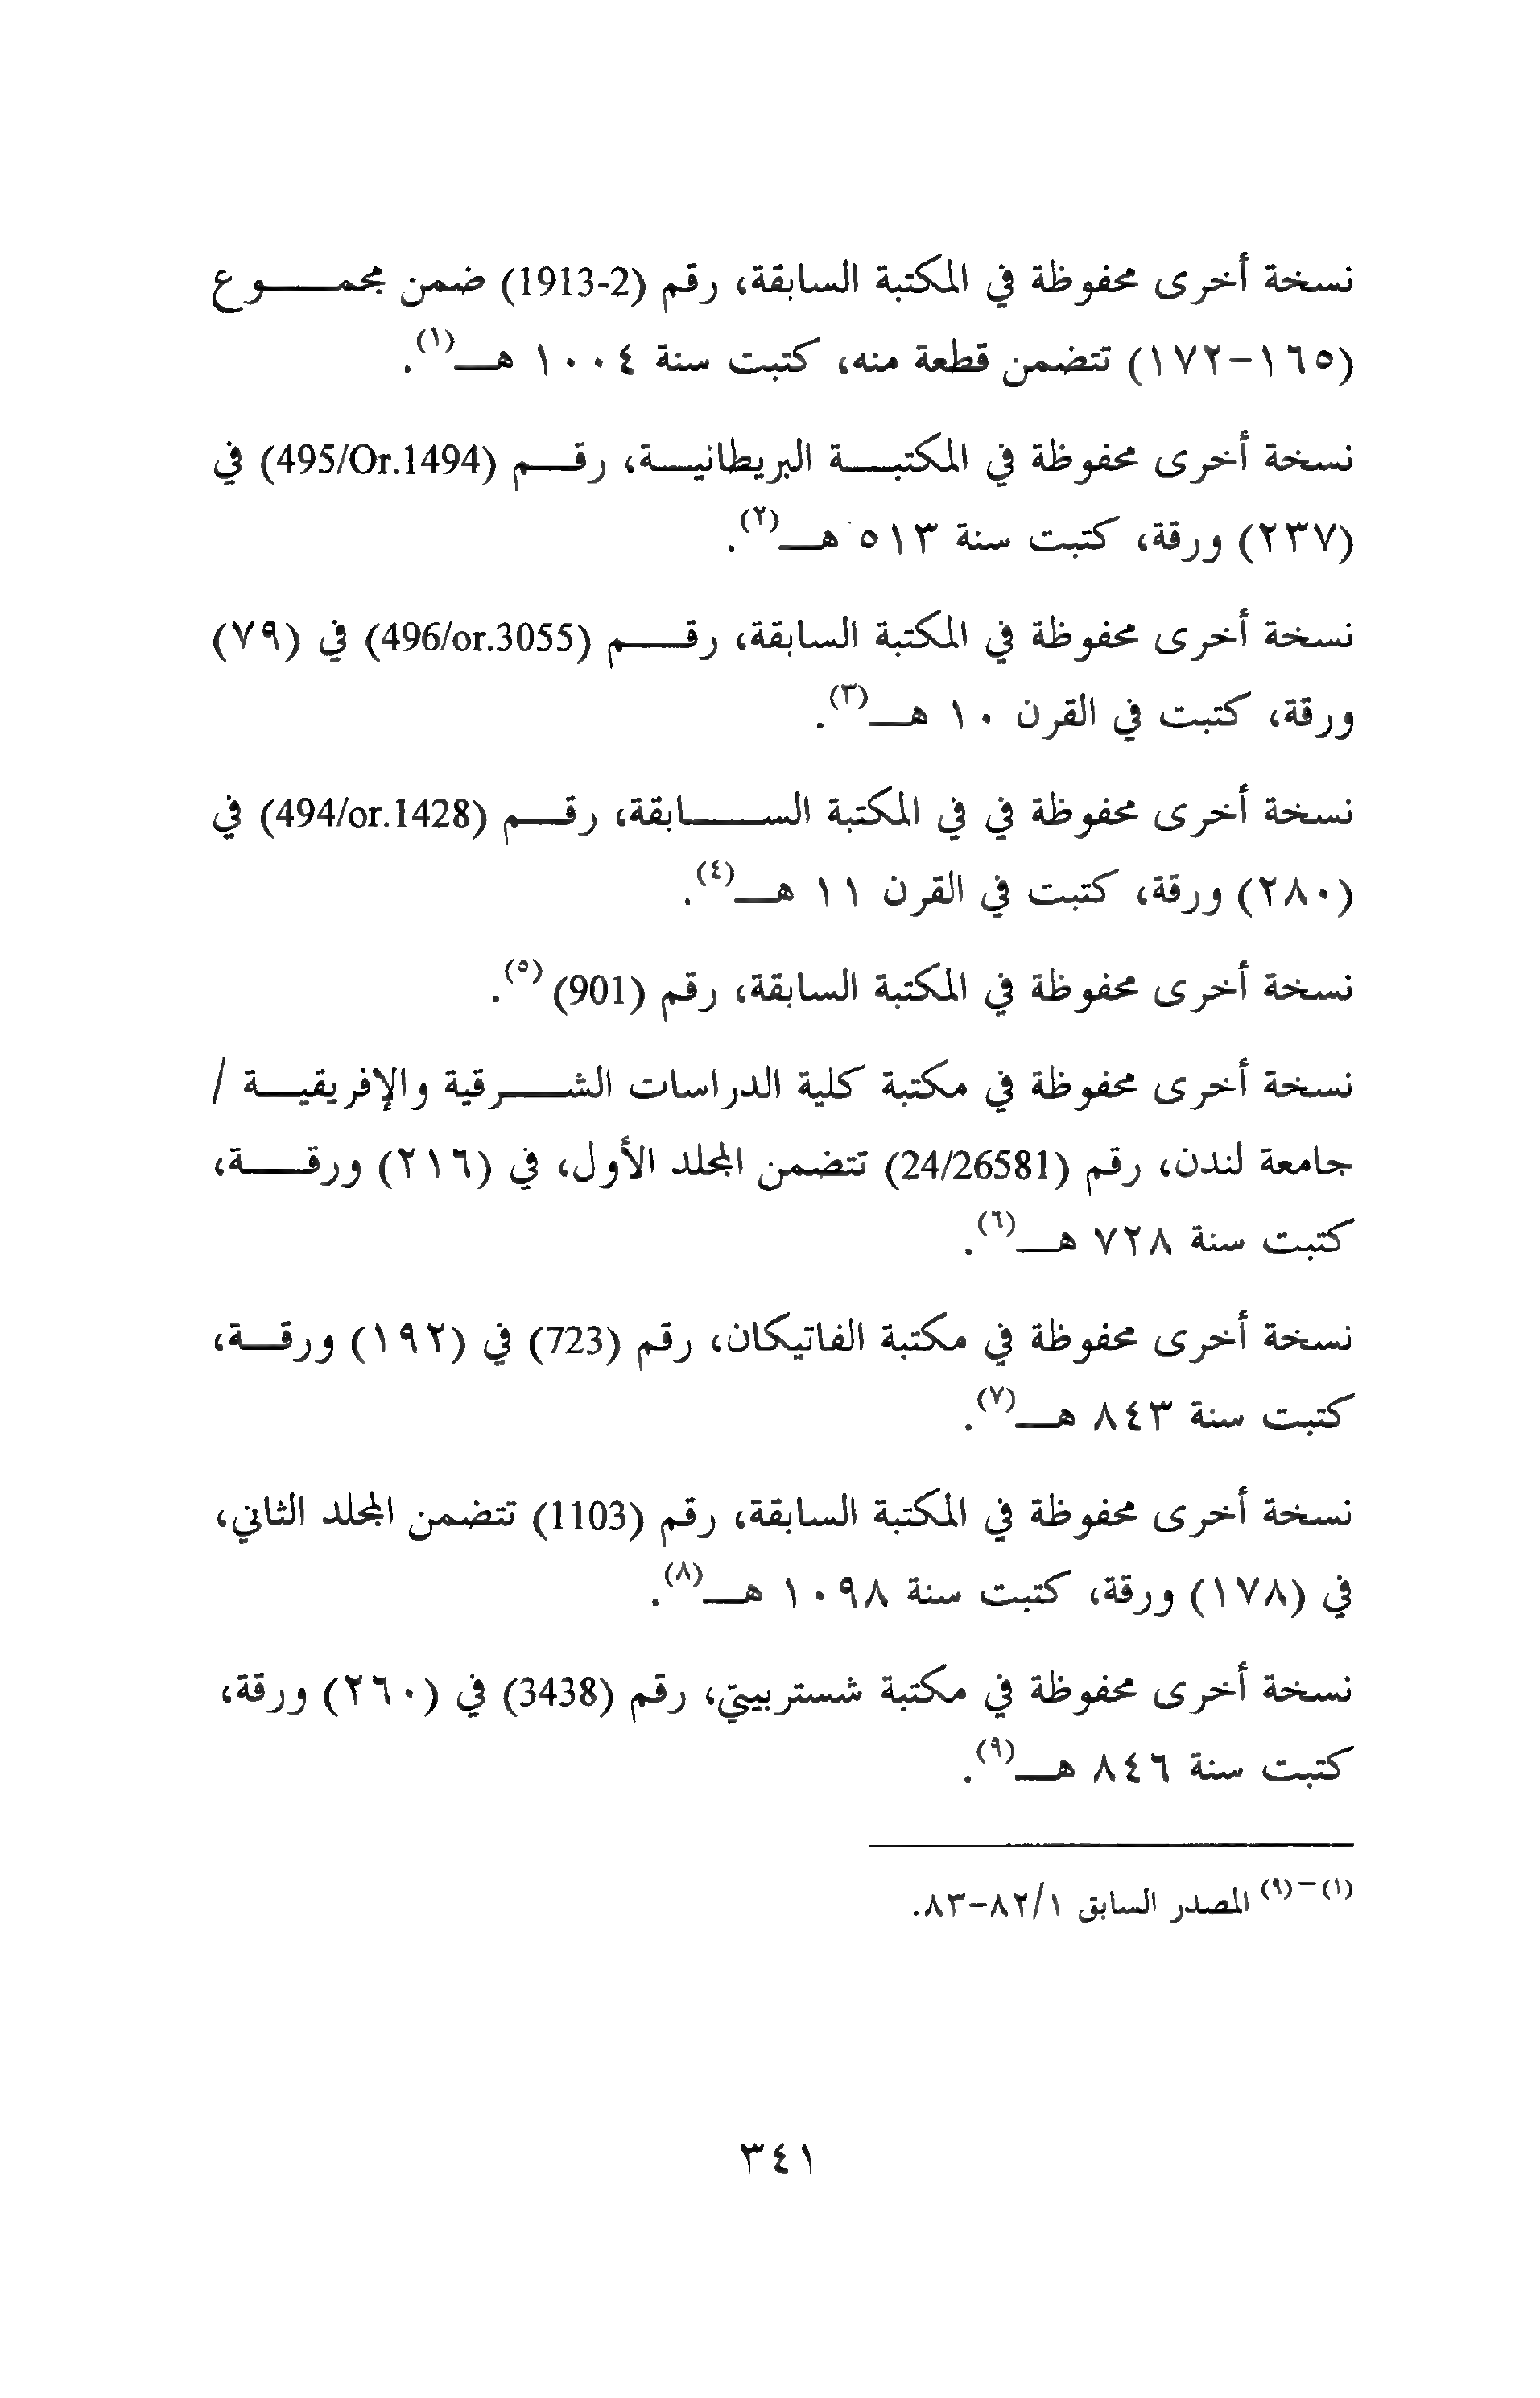 نسخة أخرى محفوظة في المكتبة السابقة، رقم (1913-2) ضمن مجمـــــوع
(١٦٥-١٧٢) تتضمن قطعة منه، كتبت سنة ١٠٠٤ هــ(١).
نسخة أخرى محفوظة في المكتبـــة البريطانيــة، رقـــم (495/Or.1494) في
(٢٣٧) ورقة، كتبت سنة ٥١٣ هــ(٢).
نسخة أخرى محفوظة في المكتبة السابقة، رقـــم (496/or.3055) في (٧٩)
ورقة، كتبت في القرن ١٠ هــ(٣).
نسخة أخرى محفوظة في في المكتبة الســـــابقة، رقـــم (494/or.1428) في
(٢٨٠) ورقة، كتبت في القرن ١١ هــ(٤).
نسخة أخرى محفوظة في المكتبة السابقة، رقم (901) (٥).
نسخة أخرى محفوظة في مكتبة كلية الدراسات الشـــرقية والإفريقيــة /
جامعة لندن، رقم (24/26581) تتضمن المجلد الأول، في (٢١٦) ورقـــة،
كتبت سنة ٧٢٨ هــ(٦).
نسخة أخرى محفوظة في مكتبة الفاتيكان، رقم (723) في (١٩٢) ورقــة،
كتبت سنة ٨٤٣ هــ(٧).
نسخة أخرى محفوظة في المكتبة السابقة، رقم (1103) تتضمن المجلد الثاني،
في (١٧٨) ورقة، كتبت سنة ١٠٩٨ هــ(٨).
نسخة أخرى محفوظة في مكتبة شستربيتي، رقم (3438) في (٢٦٠) ورقة،
كتبت سنة ٨٤٦ هــ(٩).
(١)-(٩) المصدر السابق ٨٢/١-٨٣.
٣٤١